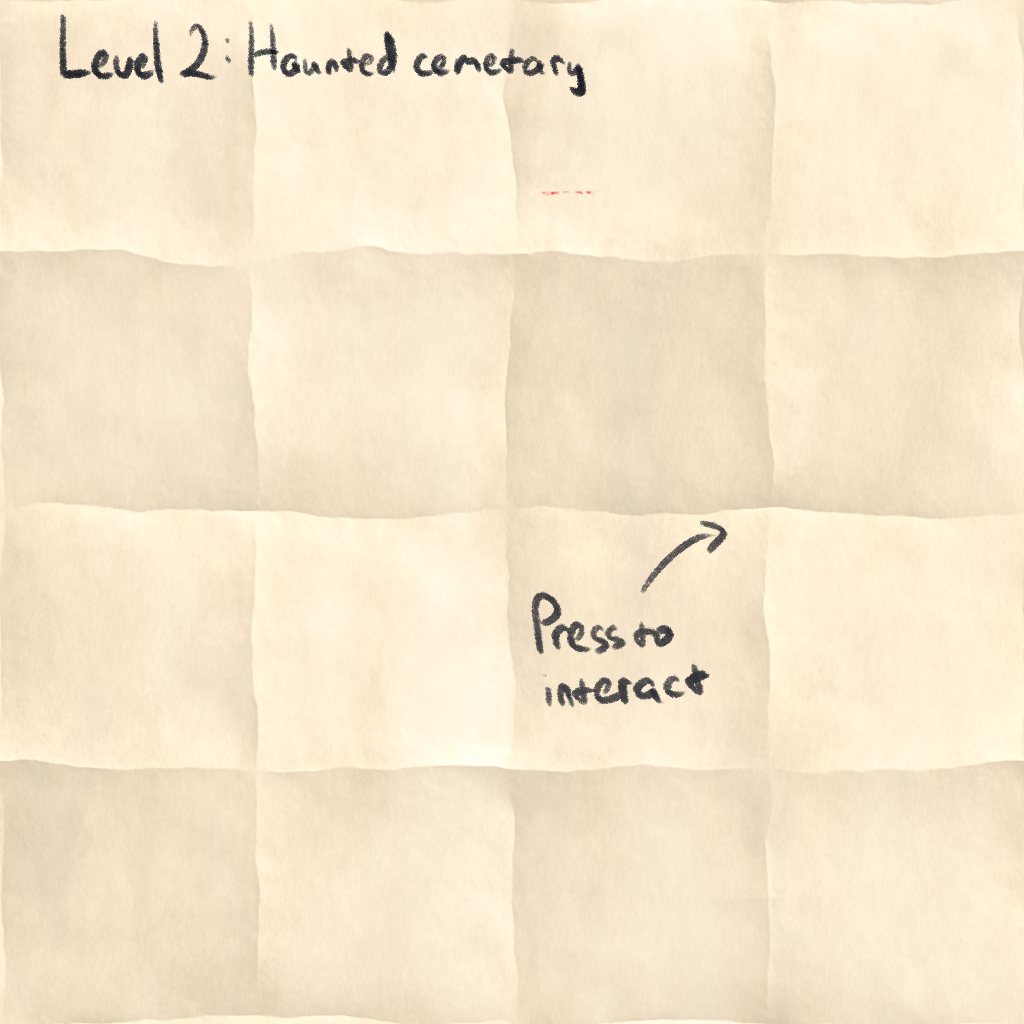 Level 2: Haunted cemetary
Press to
interact